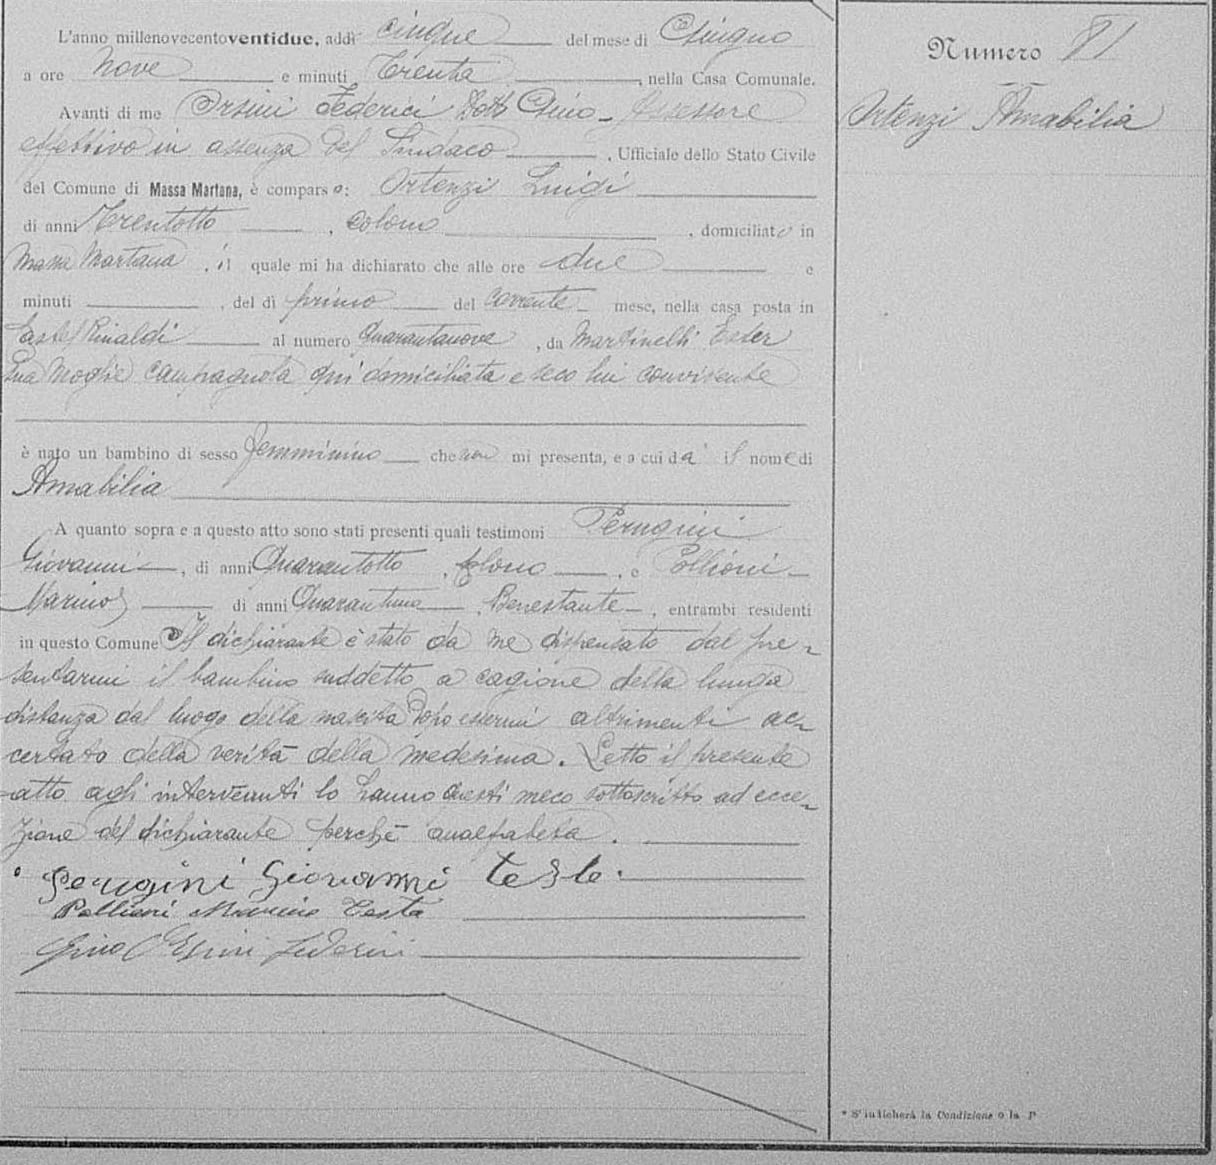 L'anno millenovecentoventidue, addì cinque del mese di Giugno
a ore Nove e minuti Trenta, nella Casa Comunale.
Avanti di me Orsini Federici Dott Gino - Assessore
effettivo in assenza del Sindaco, Ufficiale dello Stato Civile
del Comune di Massa Martana, è comparso: Ortenzi Luigi
di anni Trentotto, colono, domiciliato in
Massa Martana, il quale mi ha dichiarato che alle ore due e
minuti, del dì primo del corrente mese, nella casa posta in
Castel Rinaldi al numero Quarantanove, da Martinelli Ester
sua moglie campagnola qui domiciliata e seco lui convivente
è nato un bambino di sesso femminino che non mi presenta, e a cui dà il nome di
Amabilia
A quanto sopra e a questo atto sono stati presenti quali testimoni Perugini
Giovanni, di anni Quarantotto, colono, e Pollioni
Marino di anni Quarantuno, Benestante, entrambi residenti
in questo Comune Il dichiarante è stato da me dispensato dal pre-
sentarmi il bambino suddetto a cagione della lunga
distanza dal luogo della nascita dopo essermi altrimenti ac-
certato della verità della medesima. Letto il presente
atto agli intervenuti lo hanno questi meco sottoscritto ad ecce-
zione del dichiarante perchè analfabeta.
Perugini Giovanni teste.
Pollioni Marino Testa
Gino Orsini Federici
Numero 81
Ortenzi Amabilia
* S'indicherà la Condizione o la P